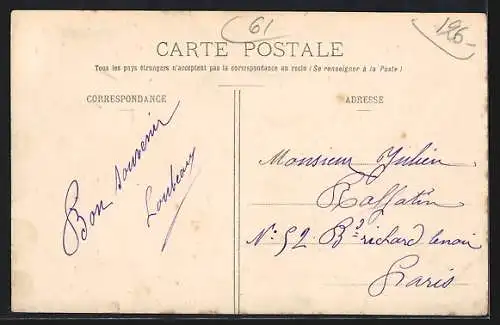 61
126-
CARTE POSTALE
Tous les pays étrangers n'acceptent pas la correspondance au recto (Se renseigner à la Poste)
CORRESPONDANCE
ADRESSE
Bon souvenir
Monsieur Julien
Raffatin
N° 52. Bd richard lenoir
Paris